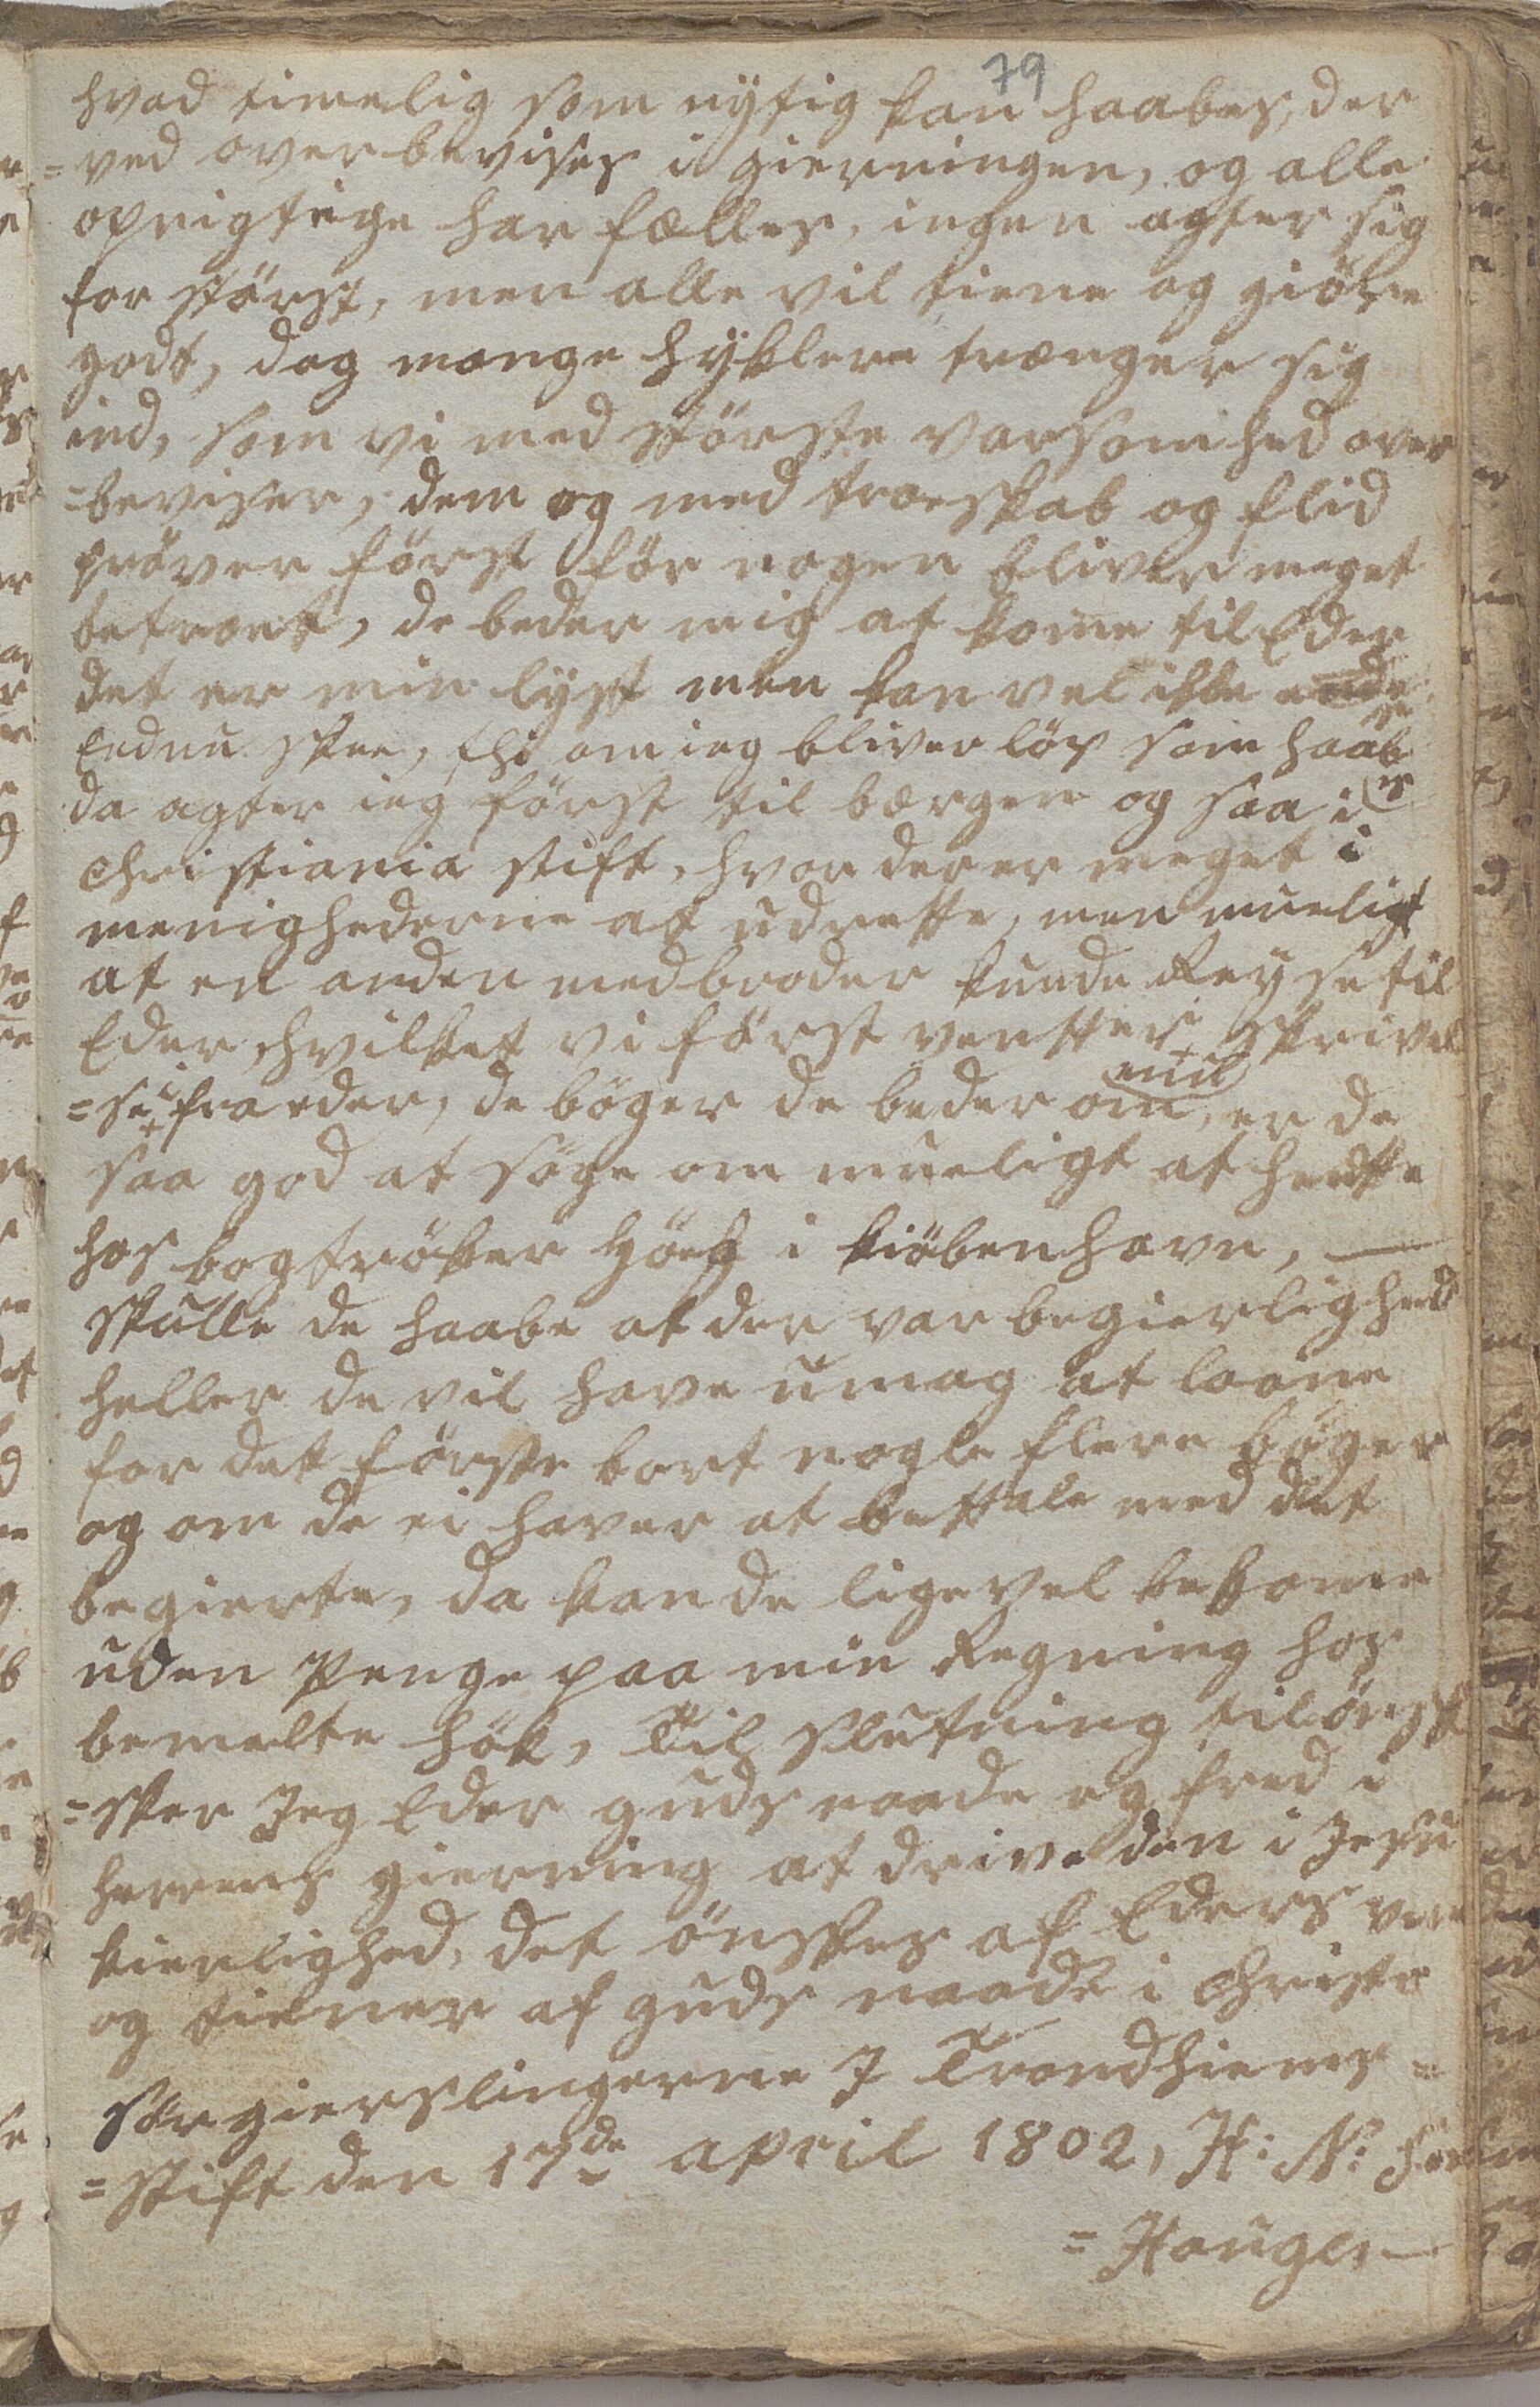 79
hvad timelig som nÿtig kan haabes, der
=ved overbevises i gierningen, og alle
oprigtige har fælles, ingen agter sig
for störst, men alle vil tiene og giöre
godt, dog mange hÿklere trænger sig
ind, som vi med störste varsomhed over
=beviser, dem og med troeskab og flid
pröver först för nogen bliver meget
betroet, de beder mig at kome til Eder
det er min lÿst men kan vel ikke
Endnu skee, thi om ieg bliver lös som haab
es
da agter ieg först til bærgen og saa i
Christiania stift, hvor der er meget i
menighederne at udrette, men mueligt
at en anden medbroder kunde Reÿse til
Eder, hvilket vi först ventter skrivel
=se i fra eder, de böger de beder om, er de
saa god at söge om mueligt at hentte
hos bogtröker Höeg i kiöbenhavn, —
skulle de haabe at der var begierlighed
heller de vil have umag at laane
for det förste bort nogle flere böger
og om de ei haver at bettale med det
begierte, da kan de ligevel bekome
uden Penge paa min Regning hos
bemelte hök, Til slutning tilönsk
=sker Jeg Eder guds naade og fred i
herrens gierning at drive den i Jesu
kierlighed, det önskes af Eders ven
og tiener af guds naade i Christo
Sörgierslingerne J Trondhiems=
=Stift den 17de april 1802, H: N:
=Haugen